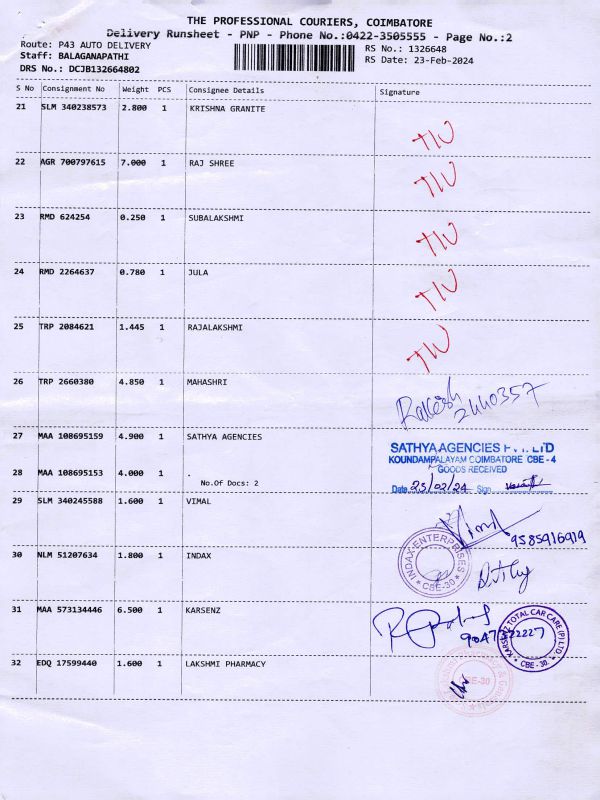 THE PROFESSIONAL COURIERS, COIMBATORE
Delivery Runsheet - PNP - Phone No.:0422-3505555 - Page No.:2
Route: P43 AUTO DELIVERY
RS No.: 1326648
Staff: BALAGANAPATHI
RS Date: 23-Feb-2024
DRS No.: DCJB132664802
S No Consignment No Weight PCS Consignee Details Signature
21 SLM 340238573 2.800 1 KRISHNA GRANITE
22 AGR 700797615 7.000 1 RAJ SHREE
23 RMD 624254 0.250 1 SUBALAKSHMI
24 RMD 2264637 0.780 1 JULA
25 TRP 2084621 1.445 1 RAJALAKSHMI
26 TRP 2660380 4.850 1 MAHASHRI
Rakesh
2440357
27 MAA 108695159 4.900 1 SATHYA AGENCIES
SATHYA AGENCIES LTD
KOUNDAMPALAYAM COIMBATORE CBE - 4
GOODS RECEIVED
Date 23/02/24 Sign
28 MAA 108695153 4.000 1 .
No.Of Docs: 2
29 SLM 340245588 1.600 1 VIMAL
Vimal
9585916919
30 NLM 51207634 1.800 1 INDAX
INDAX ENTERPRISES
CBE-30
31 MAA 573134446 6.500 1 KARSENZ
KARSENZ TOTAL CAR CARE (P) LTD
CBE-30
32 EDQ 17599440 1.600 1 LAKSHMI PHARMACY
CBE-30